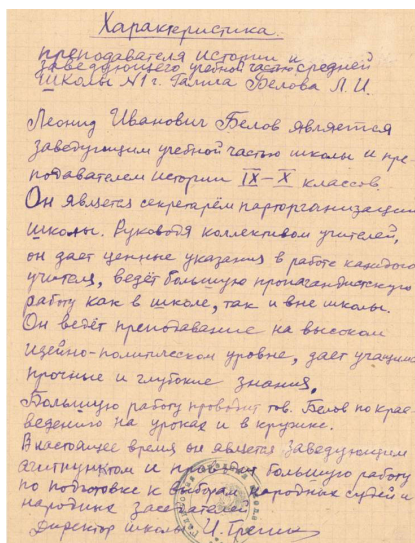 Характеристика.
преподавателя истории и
заведующего учебной частью средней
школы №1 г. Галича Белова Л.И.
Леонид Иванович Белов является
заведующим учебной частью школы и пре-
подавателем истории IX–X классов.
Он является секретарём парторганизации
школы. Руководя коллективом учителей,
он дает ценные указания в работе каждого
учителя, ведёт большую пропагандистскую
работу как в школе, так и вне школы.
Он ведёт преподавание на высоком
идейно-политическом уровне, дает учащимся
прочные и глубокие знания.
Большую работу проводит тов. Белов по крае-
ведению на уроках и в кружке.
В настоящее время он является заведующим
агитпунктом и проводит большую работу
по подготовке к выборам народных судей и
народных заседателей.
Директор школы И.